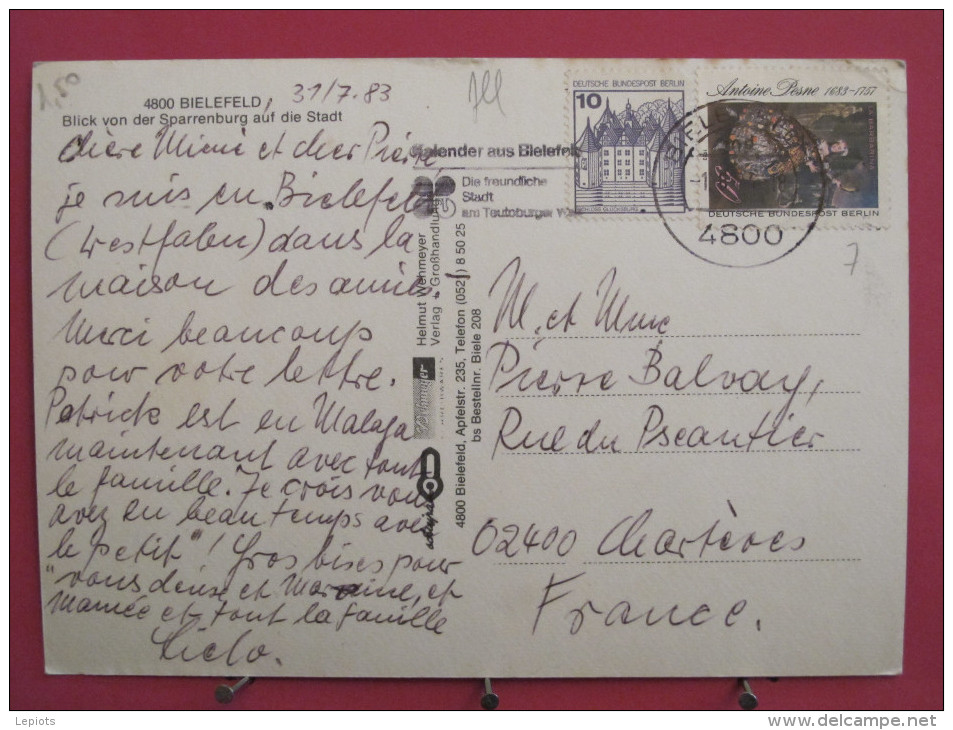 1,50
4800 BIELEFELD, 31/7.83
Blick von der Sparrenburg auf die Stadt
Chère Mimi et cher Pierre
je suis en "Bielefeld
(Westfalen) dans la
maison des amies!
Merci beaucoup
pour votre lettre.
Patrick est en Malaga
maintenant avec tout
le famille. Je crois vous
avez eu beau temps avec
le petit"! Gros bises pour
"vous deuse et Marraine, et
Mamée et tout la famille
Kalender aus Bielefeld
Die freundliche
Stadt
am Teutoburger
Helmut Wehmeyer
Verlag + Großhandlung
4800 Bielefeld, Apfelstr. 235, Telefon (0521) 8 50 25
bs Bestellnr. Biele 208
DEUTSCHE BUNDESPOST BERLIN
10
SCHLOSS GLÜCKSBURG
Antoine Pesne 1683-1757
DEUTSCHE BUNDESPOST BERLIN
4800
7
M. et Mme
Pierre Balvay,
Rue du
02400 Chartèves
France.
Lepiots
www.delcampe.net